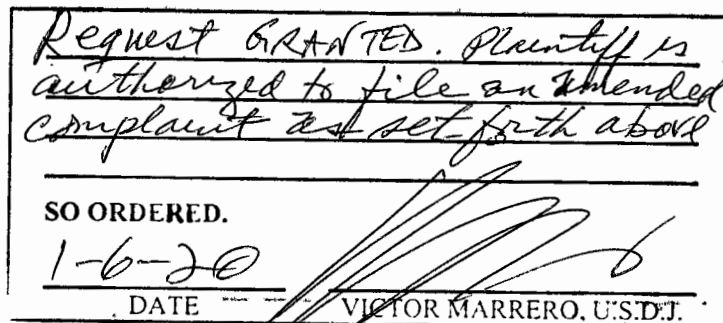 Request GRANTED. Plaintiff is
authorized to file an amended
complaint as set forth above
SO ORDERED.
1-6-20
DATE VICTOR MARRERO, U.S.D.J.